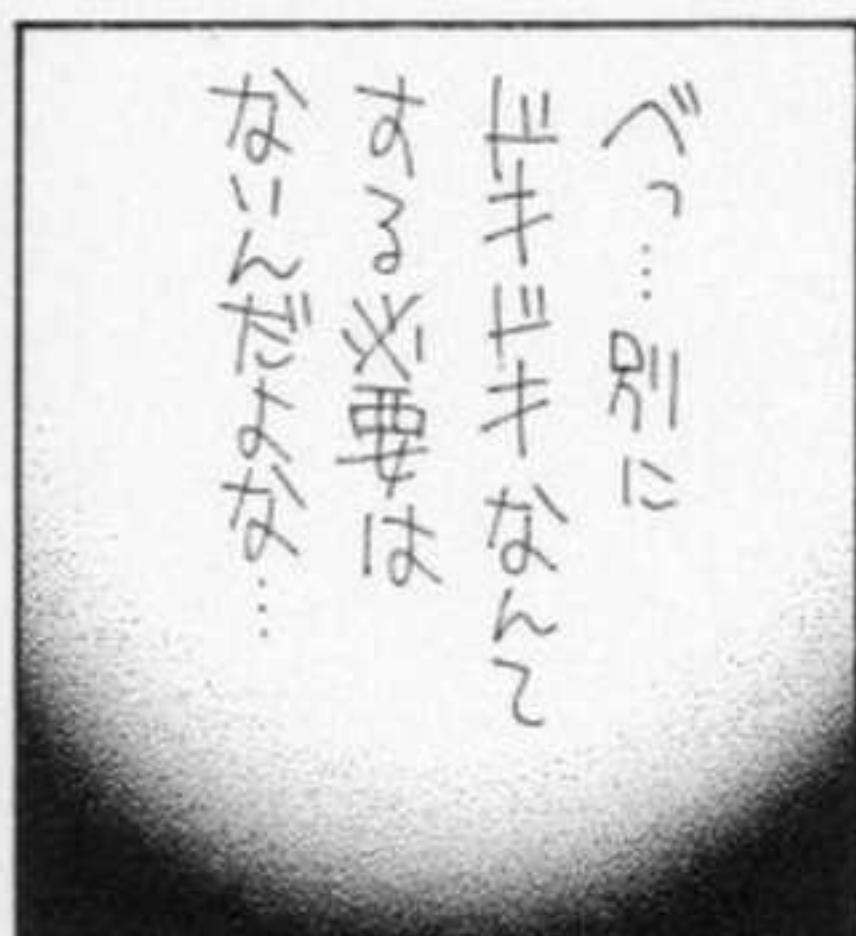 べっ…別に
ドキドキなんて
する必要は
ないんだよな…